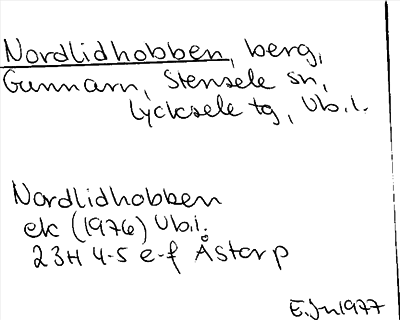 Nordlidhobben, berg,
Gunnarn, Stensele sn,
Lycksele tg, Vb.l.
Nordlidhobben
ek (1976) Vb.l.
23H 4-5 e-f Åstorp
E.Jn1977